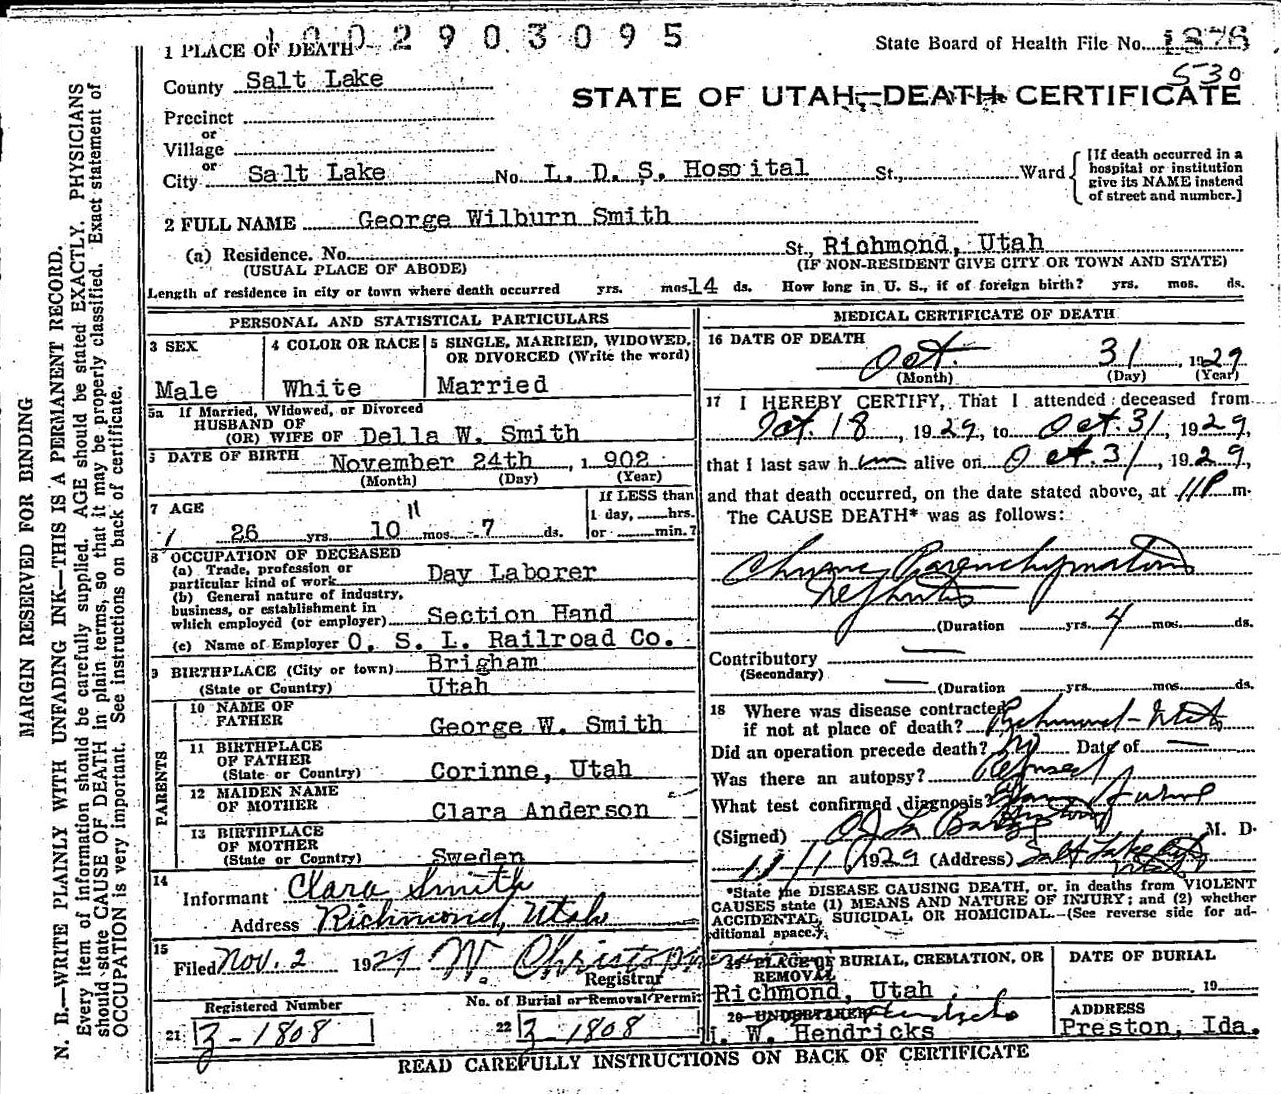 1002903095
1 PLACE OF DEATH
State Board of Health File No. 1876
530
County Salt Lake
STATE OF UTAH—DEATH CERTIFICATE
Precinct
or
Village
or
City Salt Lake No. L. D. S. Hospital St., Ward
[If death occurred in a
hospital or institution
give its NAME instend
of street and number.]
2 FULL NAME George Wilburn Smith
(a) Residence. No. St., Richmond, Utah
(USUAL PLACE OF ABODE) (IF NON-RESIDENT GIVE CITY OR TOWN AND STATE)
Length of residence in city or town where death occurred yrs. mos. 14 ds. How long in U. S., if of foreign birth? yrs. mos. ds.
PERSONAL AND STATISTICAL PARTICULARS
3 SEX
Male
4 COLOR OR RACE
White
5 SINGLE, MARRIED, WIDOWED,
OR DIVORCED (Write the word)
Married
5a If Married, Widowed, or Divorced
HUSBAND OF
(OR) WIFE OF Della W. Smith
DATE OF BIRTH November 24th, 1902
(Month) (Day) (Year)
7 AGE
26 yrs. 10 mos. 7 ds.
11
If LESS than
1 day, hrs.
or min.?
8 OCCUPATION OF DECEASED
(a) Trade, profession or
particular kind of work Day Laborer
(b) General nature of industry,
business, or establishment in
which employed (or employer) Section Hand
(c) Name of Employer O. S. L. Railroad Co.
9 BIRTHPLACE (City or town) Brigham
(State or Country) Utah
PARENTS
10 NAME OF
FATHER George W. Smith
11 BIRTHPLACE
OF FATHER
(State or Country) Corinne, Utah
12 MAIDEN NAME
OF MOTHER Clara Anderson
13 BIRTHPLACE
OF MOTHER
(State or Country) Sweden
14
Informant Clara Smith
Address Richmond, Utah
15
Filed Nov. 2 1929 W. Christopherson
Registrar
Registered Number
21 Z-1808
No. of Burial or Removal Permit
22 Z-1808
MEDICAL CERTIFICATE OF DEATH
16 DATE OF DEATH
Oct. 31 1929
(Month) (Day) (Year)
17 I HEREBY CERTIFY, That I attended deceased from
Oct. 18, 1929, to Oct. 31, 1929,
that I last saw him alive on Oct. 31, 1929,
and that death occurred, on the date stated above, at 11 P m.
The CAUSE DEATH* was as follows:
Chronic Parenchymatous
Nephritis
(Duration yrs. 4 mos. ds.
Contributory
(Secondary)
(Duration yrs. mos. ds.
18 Where was disease contracted
if not at place of death? Richmond - Utah
Did an operation precede death? No Date of
Was there an autopsy? Refused
What test confirmed diagnosis?
(Signed) M. D.
11/1 1929 (Address) Salt Lake City
Utah
*State the DISEASE CAUSING DEATH, or, in deaths from VIOLENT
CAUSES state (1) MEANS AND NATURE OF INJURY; and (2) whether
ACCIDENTAL, SUICIDAL OR HOMICIDAL.—(See reverse side for ad-
ditional space.)
19 PLACE OF BURIAL, CREMATION, OR
REMOVAL
Richmond, Utah
DATE OF BURIAL
19
20 UNDERTAKER
W. Hendricks
ADDRESS
Preston, Ida.
READ CAREFULLY INSTRUCTIONS ON BACK OF CERTIFICATE
MARGIN RESERVED FOR BINDING
N. B.—WRITE PLAINLY WITH UNFADING INK—THIS IS A PERMANENT RECORD.
Every item of information should be carefully supplied. AGE should be stated EXACTLY. PHYSICIANS
should state CAUSE OF DEATH in plain terms, so that it may be properly classified. Exact statement of
OCCUPATION is very important. See instructions on back of certificate.